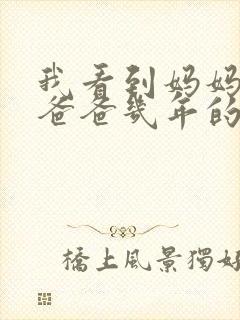 我看到妈妈
爸爸幾年的
橋上風景獨好